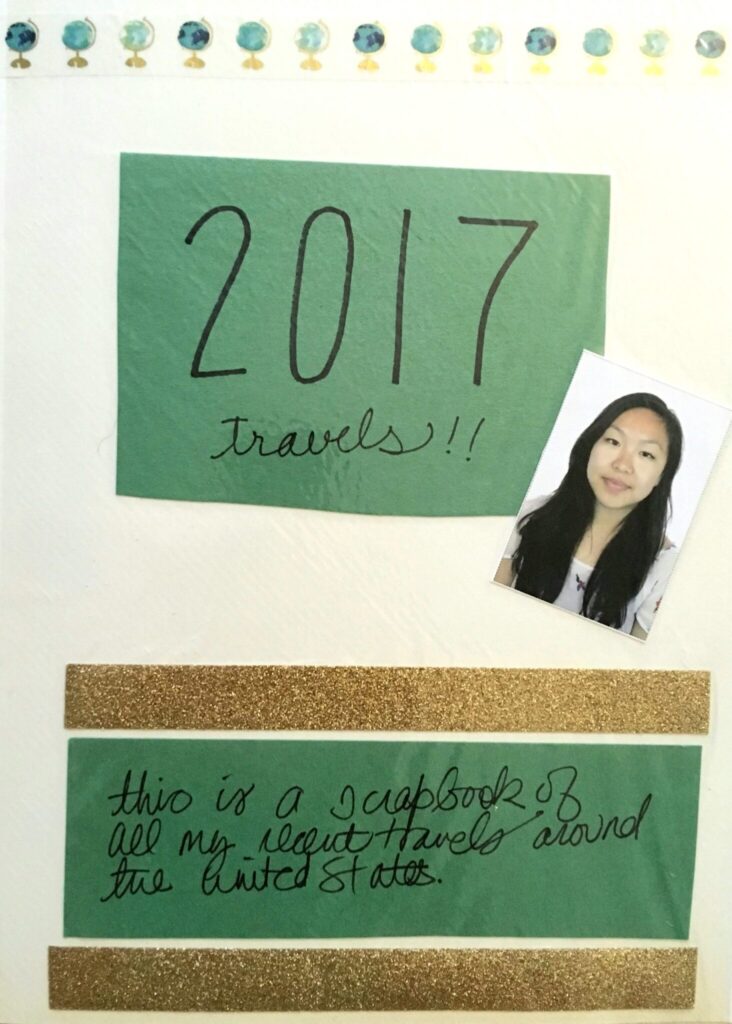 2017
travels!!
this is a scrapbook of
all my recent travels around
the United States.